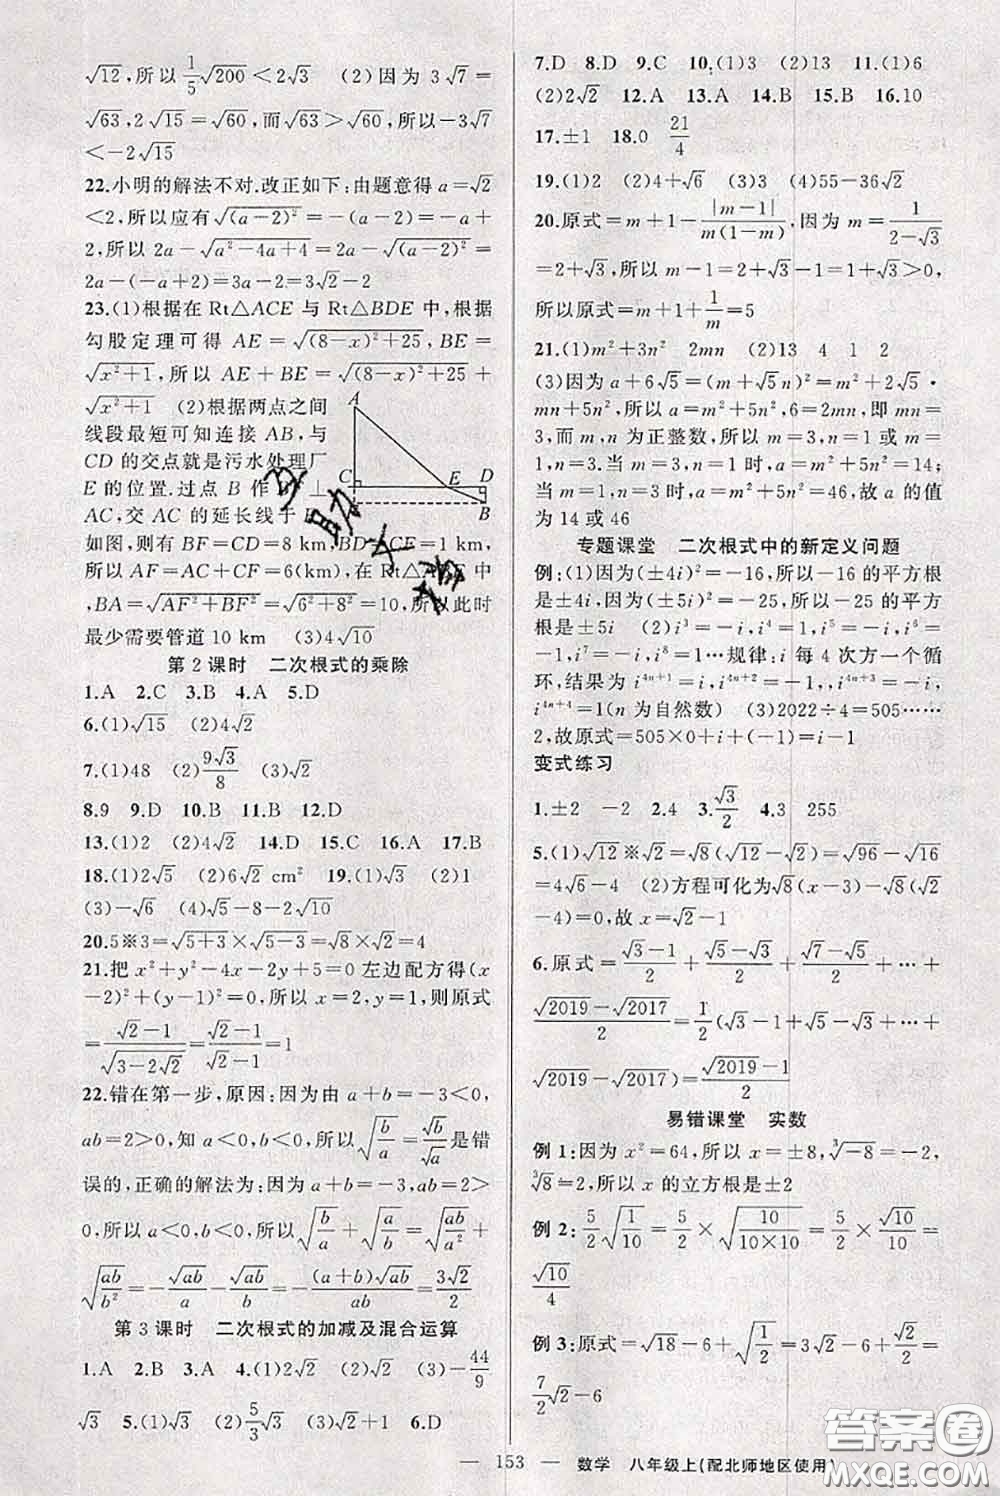 √12,所以 1/5√200<2√3　(2)因为 3√7=
√63,2√15=√60,而√63>√60,所以-3√7
<-2√15
22.小明的解法不对.改正如下:由题意得 a=√2
<2,所以应有√(a-2)²=-(a-2)=-a+
2,所以 2a-√(a²-4a+4)=2a-√(a-2)²=
2a-(-a+2)=3a-2=3√2-2
23.(1)根据在 Rt△ACE 与 Rt△BDE 中,根据
勾股定理可得 AE=√((8-x)²+25),BE=
√(x²+1),所以 AE+BE=√((8-x)²+25)+
√(x²+1)　(2)根据两点之间
线段最短可知连接 AB,与
CD 的交点就是污水处理厂
E 的位置.过点 B 作 ⊥
AC,交 AC 的延长线于
A
C
E
D
B
如图,则有 BF=CD=8 km,BD CE=1 km,
所以 AF=AC+CF=6(km),在 Rt△ 中
,BA=√(AF²+BF²)=√(6²+8²)=10,所以此时
最少需要管道 10 km　(3)4√10
第 2 课时　二次根式的乘除
1.A　2.C　3.B　4.A　5.D
6.(1)√15　(2)4√2
7.(1)48　(2)9√3/8　(3)√2
8.9　9.D　10.B　11.B　12.D
13.(1)2　(2)4√2　14.D　15.C　16.A　17.B
18.(1)2√5　(2)6√2 cm²　19.(1)√3　(2)1
(3)-√6　(4)√5-8-2√10
20.5※3=√(5+3)×√(5-3)=√8×√2=4
21.把 x²+y²-4x-2y+5=0 左边配方得(x
-2)²+(y-1)²=0,所以 x=2,y=1,则原式
=(√2-1)/√(3-2√2)=(√2-1)/(√2-1)=1
22.错在第一步,原因:因为 a+b=-3<0,
ab=2>0,知 a<0,b<0,所以√(b/a)=√b/√a是错
误的,正确的解法为:因为 a+b=-3,ab=2>
0,所以 a<0,b<0,所以√(b/a)+√(a/b)=√(ab/a²)+
√(ab/b²)=-√ab/a-√ab/b=-(a+b)√ab/ab=3√2/2
第 3 课时　二次根式的加减及混合运算
1.A　2.B　3.A　4.(1)2√2　(2)√2　(3)-44/9
√3　5.(1)√3　(2)5/3√3　(3)√2+1　6.D
7.D　8.D　9.C　10.(1)3　(2)13　11.(1)6
(2)2√2　12.A　13.A　14.B　15.B　16.10
17.±1　18.0　21/4
19.(1)2　(2)4+√6　(3)3　(4)55-36√2
20.原式=m+1-|m-1|/m(1-m),因为 m=1/(2-√3)
=2+√3,所以 m-1=2+√3-1=1+√3>0,
所以原式=m+1+1/m=5
21.(1)m²+3n²　2mn　(2)13　4　1　2
(3)因为 a+6√5=(m+√5n)²=m²+2√5·
mn+5n²,所以 a=m²+5n²,6=2mn,即 mn=
3,而 m,n 为正整数,所以 m=1,n=3 或 m=
3,n=1,当 m=3,n=1 时,a=m²+5n²=14;
当 m=1,n=3 时,a=m²+5n²=46,故 a 的值
为 14 或 46
专题课堂　二次根式中的新定义问题
例:(1)因为(±4i)²=-16,所以-16 的平方根
是±4i,因为(±5i)²=-25,所以-25 的平方
根是±5i　(2)i³=-i,i⁴=1,i⁵=i,i⁶=
-1,i⁷=-i,i⁸=1…规律:i 每 4 次方一个循
环,结果为 i⁴ⁿ⁺¹=i,i⁴ⁿ⁺²=-1,i⁴ⁿ⁺³=-i,
i⁴ⁿ⁺⁴=1(n 为自然数)　(3)2022÷4=505……
2,故原式=505×0+i+i²=i-1
变式练习
1.±2　-2　2.4　3.√3/2　4.3　255
5.(1)√12※√2=√8(√12-√2)=√96-√16=
4√6-4　(2)方程可化为√8(x-3)-√8(√2
-4)=0,故 x=√2-1
6.原式=(√3-1)/2+(√5-√3)/2+(√7-√5)/2+…+
(√2019-√2017)/2=1/2(√3-1+√5-√3+…+
√2019-√2017)=(√2019-1)/2
易错课堂　实数
例 1:因为 x²=64,所以 x=±8,³√-8=-2,
³√8=2,所以 x 的立方根是±2
例 2:5/2√(1/10)=5/2×√(10/(10×10))=5/2×√10/10=
√10/4
例 3:原式=√18-6+√(1/2)=3√2+√2/2-6=
7/2√2-6
— 153 —　数学　八年级上(配北师地区使用)
答案圈
MXQE.COM